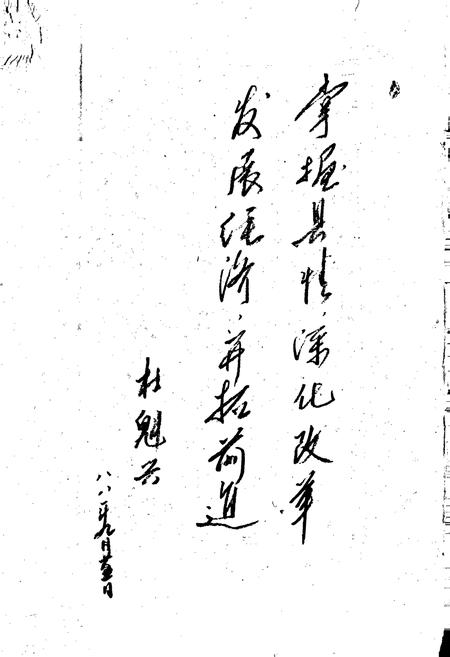 掌握县情，深化改革
发展经济，开拓前进
杜魁兴
八八年九月廿五日